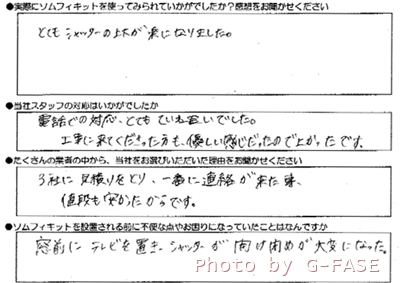 ●実際にソムフィキットを使ってみられていかがでしたか？感想をお聞かせください
とても シャッターの上下が楽になりました。
●当社スタッフの対応はいかがでしたか
電話での対応、とてもていねいでした。
工事に来てくださった方も、優しい感じだったので よかったです。
●たくさんの業者の中から、当社をお選びいただいた理由をお聞かせください
3社に見積りをとり、一番に連絡が来た事、
値段も安かったからです。
●ソムフィキットを設置される前に不便な点やお困りになっていたことはなんですか
窓前に テレビを置き、シャッターが 開け閉めが大変になった。
Photo by G-FASE